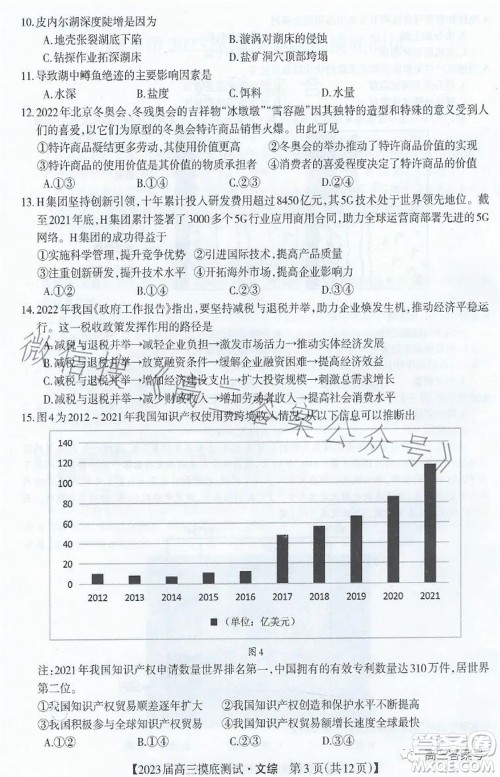 10.皮内尔湖深度陡增是因为
A.地壳张裂湖底下陷 B.漩涡对湖床的侵蚀
C.钻探作业拓深湖床 D.盐矿洞穴顶部垮塌
11.导致湖中鳟鱼绝迹的主要影响因素是
A.水深 B.盐度 C.饵料 D.水温
12.2022年北京冬奥会、冬残奥会的吉祥物“冰墩墩”“雪容融”因其独特的造型和特殊的意义受到人
们的喜爱,以它们为原型的冬奥会特许商品销售火爆。由此可见
①特许商品凝结更多劳动,其使用价值更高 ②冬奥会的举办推动了特许商品价值的实现
③特许商品的使用价值是其价值的物质承担者 ④消费者的喜爱程度决定了特许商品的价值
A.①③ B.①④ C.②③ D.②④
13.H集团坚持创新引领,十年累计投入研发费用超过8450亿元,其5G技术处于世界领先地位。截
至2021年底,H集团累计签署了3000多个5G行业应用商用合同,助力全球运营商部署先进的5G
网络。H集团的成功得益于
①实施科学管理,提升竞争优势 ②引进国际技术,提高产品质量
③注重创新研发,提升技术水平 ④开拓海外市场,提高生产效率
A.①② B.①③ C.②④ D.③④
14.2022年我国《政府工作报告》指出,要坚持减税与退税并举,助力企业焕发生机,推动经济平稳运
行。这一税收政策发挥作用的路径是
A.减税与退税并举→减轻企业负担→激发市场活力→推动实体经济发展
B.减税与退税并举→放宽融资条件→缓解企业融资困难→提高企业经济效益
C.减税与退税并举→增加经济建设支出→扩大投资规模→刺激总需求增长
D.减税与退税并举→增加劳动者收入→提高社会消费水平
15.图4为2012~2021年我国知识产权使用费跨境收入情况,从以下信息可以推断出
140
120
100
80
60
40
20
0
2012 2013 2014 2015 2016 2017 2018 2019 2020 2021
■(单位:亿美元)
图4
注:2021年我国知识产权申请数量世界排名第一,中国拥有的有效专利数量达310万件,居世界
第二位。
①我国知识产权贸易顺差逐年扩大 ②我国知识产权贸易收入总体增长
③我国积极参与全球知识产权贸易 ④我国知识产权贸易水平不断提高
A.①② B.①④ C.②③ D.③④
【2023届高三摸底测试·文综 第3页(共12页)】
微信搜《高三答案公众号》
高三答案号